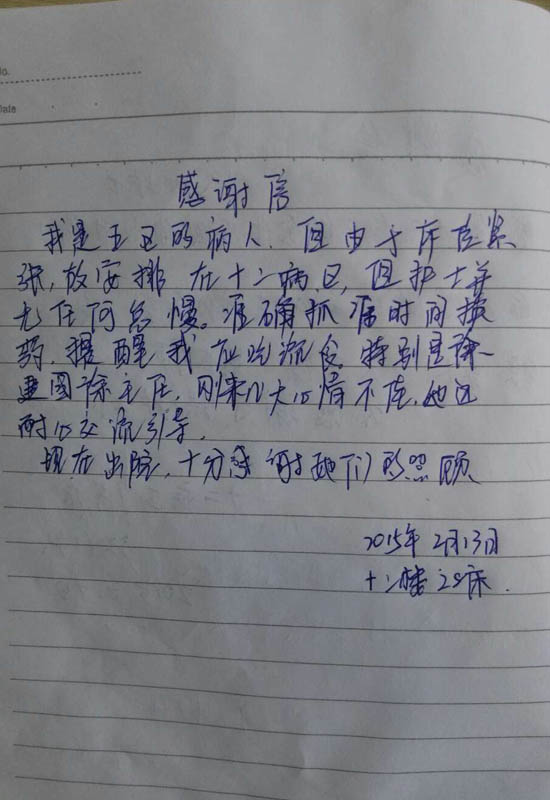 No.
Date
感谢信
我是五区的病人.但由于床位紧
张,故安排在十二病区,但护士并
无任何怠慢。准确抓准时间换
药.提醒我应吃流食.特别是徐
主任.刚来几天心情不佳.她还
耐心交流引导.
现在出院,十分感谢她们的照顾
2015年2月13日
十二楼28床.